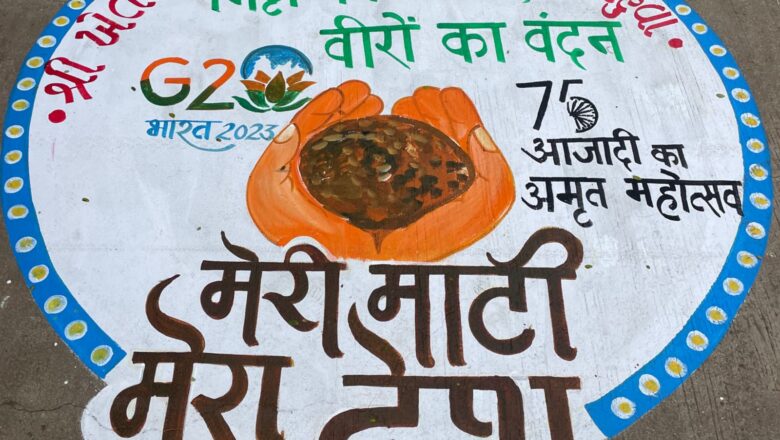 श्री खेत
वीरों का वंदन
G20
भारत 2023
75
आजादी का
अमृत महोत्सव
मेरी माटी
मेरा देश